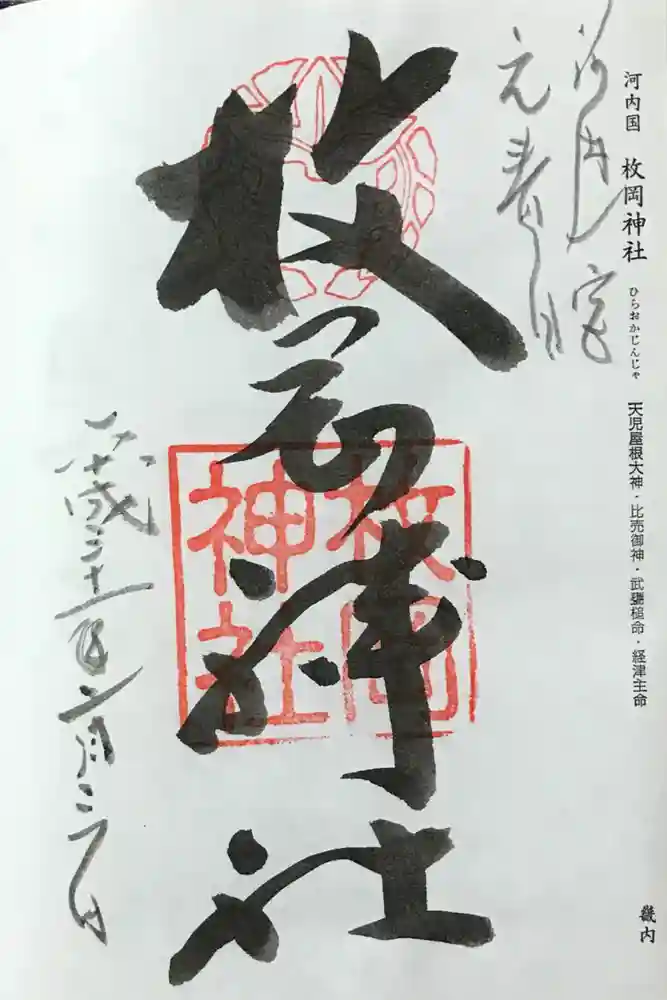 河内国 枚岡神社 ひらおかじんじゃ 天児屋根大神・比売御神・武甕槌命・経津主命
畿内
河内一宮
元春日
枚岡神社
枚岡
神社
平成三十一年二月二十一日